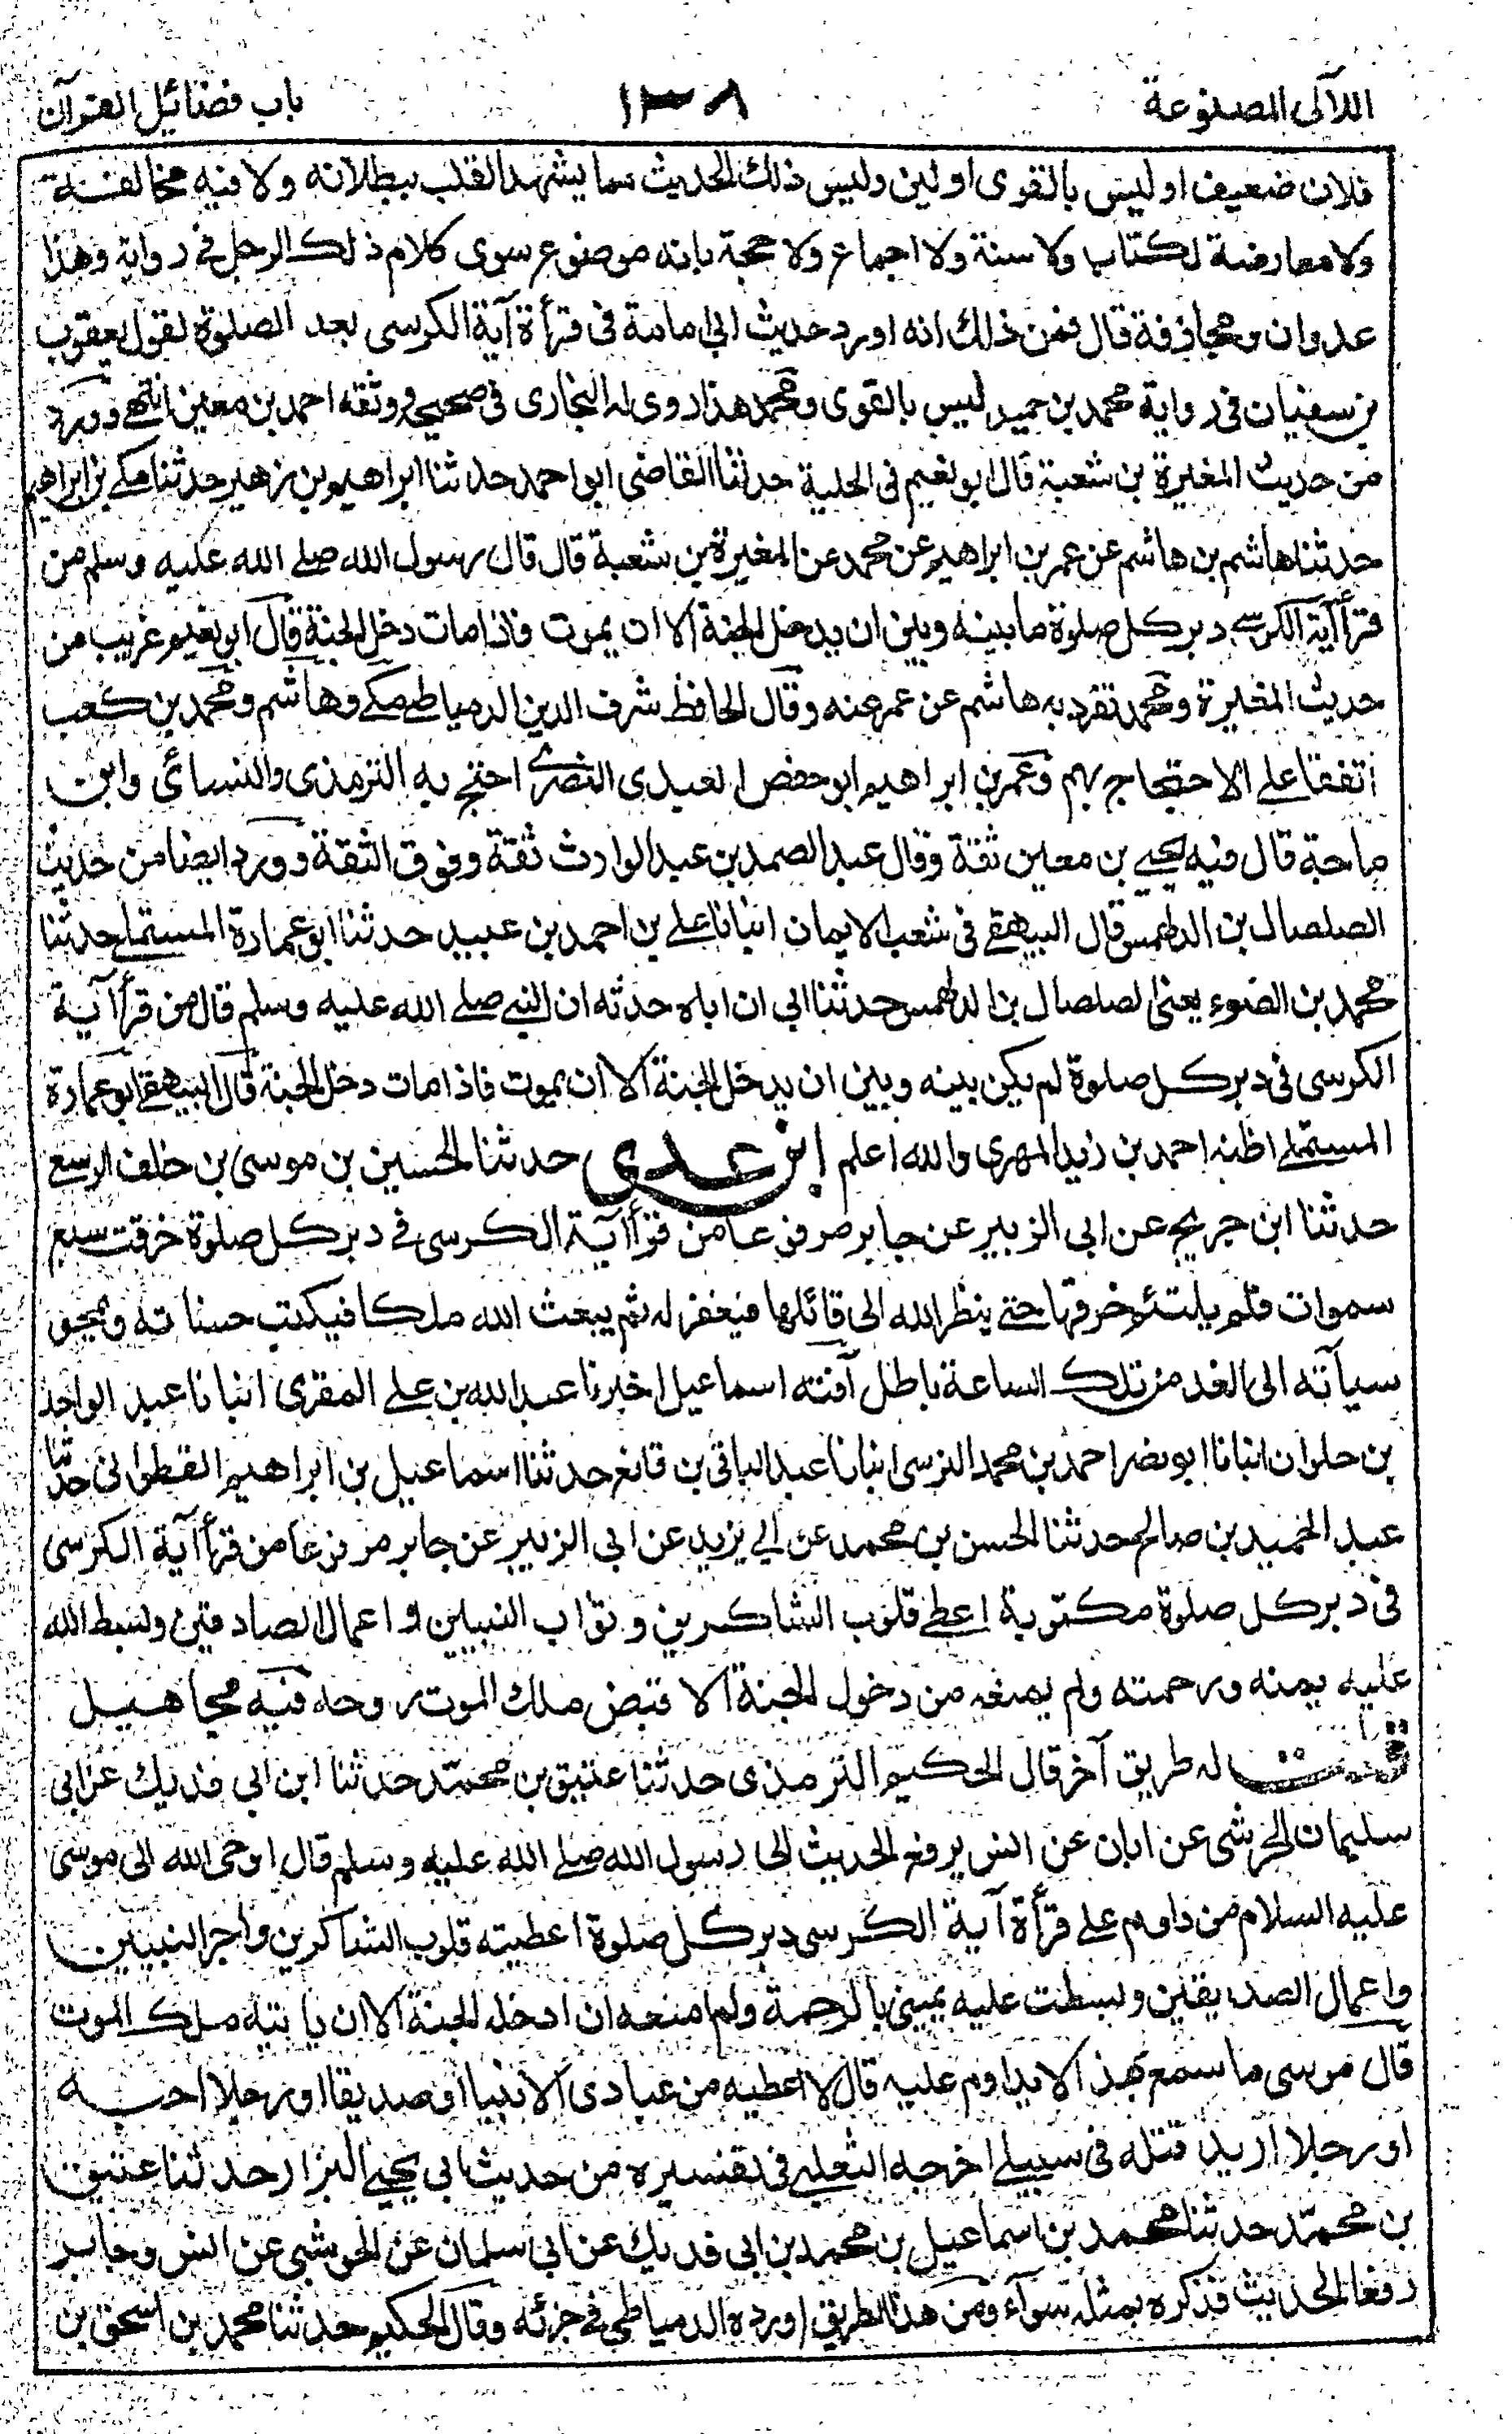 اللآلى المصنوعة ١٣٨ باب فضائل القرآن
فلان ضعيف او ليس بالقوى او لين وليس ذلك الحديث مما يشهد القلب ببطلانه ولا فيه مخالفة
ولا معارضة لكتاب ولا سنة ولا اجماع ولا حجة بانه موضوع سوى كلام ذلك الرجل فى رواية وهذا
عدوان ومجازفة قال فمن ذلك انه اورد حديث ابى امامة فى قرأة آية الكرسى بعد الصلوة لقول يعقوب
بن سفيان فى رواية محمد بن حميد ليس بالقوى ومحمد هذا روى له البخارى فى صحيحه ووثقه احمد بن معين انتهى وورد
من حديث المغيرة بن شعبة قال ابو نعيم فى الحلية حدثنا القاضى ابو احمد حدثنا ابراهيم بن زهير حدثنا مكى بن ابراهيم
حدثنا هاشم بن هاشم عن عمر بن ابراهيم عن محمد عن المغيرة بن شعبة قال قال رسول الله صلى الله عليه وسلم من
قرأ آية الكرسى دبر كل صلوة ما بينه وبين ان يدخل الجنة الا ان يموت فاذا مات دخل الجنة قال ابو نعيم غريب من
حديث المغيرة ومحمد تفرد به هاشم عن عمر عنه وقال الحافظ شرف الدين الدمياطى مكى وهاشم ومحمد بن كعب
اتفقا على الاحتجاج بهم وعمر بن ابراهيم ابو حفص العبدى البصرى احتج به الترمذى والنسائى وابن
ماجة قال فيه يحيى بن معين ثقة وقال عبد الصمد بن عبد الوارث ثقة وفوق الثقة وورد ايضا من حديث
الصلصال بن الدلهمس قال البيهقى فى شعب الايمان انبانا على بن احمد بن عبيد حدثنا ابو عمارة المستملى حدثنا
محمد بن الضوء يعنى لصلصال بن الدلهمس حدثنا ابى ان اباه حدثه ان النبى صلى الله عليه وسلم قال من قرأ آية
الكرسى فى دبر كل صلوة لم يكن بينه وبين ان يدخل الجنة الا ان يموت فاذا مات دخل الجنة قال البيهقى ابو عمارة
المستملى اظنه احمد بن زيد المهرى والله اعلم ابن عدى حدثنا الحسين بن موسى بن خلف الرسعى
حدثنا ابن جريج عن ابى الزبير عن جابر مرفوعا من قرأ آية الكرسى فى دبر كل صلوة خرقت سبع
سموات فلم يلتئم خرقها حتى ينظر الله الى قائلها فيغفر له ثم يبعث الله ملكا فيكتب حسناته ويمحو
سيآته الى الغد من تلك الساعة باطل آفته اسماعيل اخبرنا عبد الله بن على المقرى انبانا عبد الواحد
بن علوان انبانا ابو نصر احمد بن محمد النرسى انبانا عبد الباقى بن قانع حدثنا اسماعيل بن ابراهيم القطوانى حدثنا
عبد الحميد بن صالح حدثنا الحسن بن محمد عن ابى يزيد عن ابى الزبير عن جابر مرفوعا من قرأ آية الكرسى
فى دبر كل صلوة مكتوبة اعطى قلوب الشاكرين وثواب النبيين واعمال الصادقين وبسط الله
عليه يمينه ورحمته ولم يمنعه من دخول الجنة الا قبض ملك الموت روحه فيه مجاهيل
قلت له طريق آخر قال الحكيم الترمذى حدثنا عتيق بن محمد حدثنا ابن ابى فديك عن ابى
سليمان الحرشى عن ابان عن انس يرفعه الحديث الى رسول الله صلى الله عليه وسلم قال اوحى الله الى موسى
عليه السلام من داوم على قرأة آية الكرسى دبر كل صلوة اعطيته قلوب الشاكرين واجر النبيين
واعمال الصديقين وبسطت عليه يمينى بالرحمة ولم امنعه ان ادخله الجنة الا ان ياتيه ملك الموت
قال موسى ما سمع بهذا لا يداوم عليه قال لا اعطيه من عبادى الا نبيا او صديقا او رجلا احبه
او رجلا اريد قتله فى سبيلى اخرجه الثعلبى فى تفسيره من حديث ابى يحيى البزار حدثنا عتيق
بن محمد حدثنا محمد بن اسماعيل بن محمد بن ابى فديك عن ابى سلمان عن الحوشبى عن انس وجابر
رفعا الحديث فذكره بمثله سوآء ومن هذا الطريق اورده الدمياطى فى جزئه وقال الحكيم حدثنا محمد بن اسحق بن